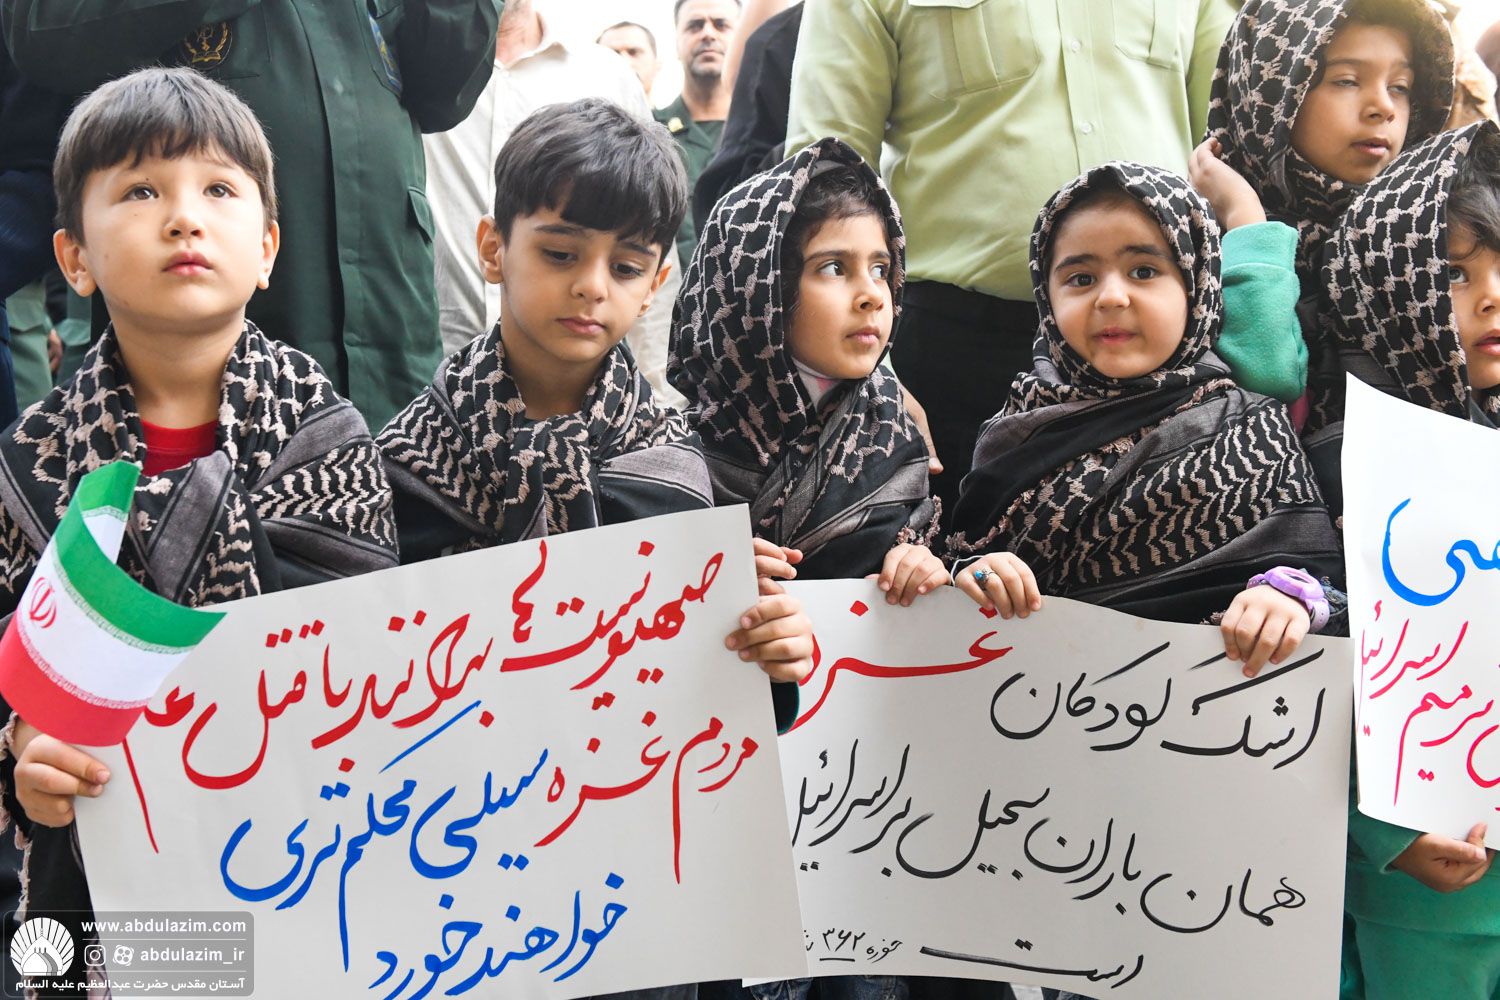 صهیونیست ها بدانند با قتل عام
مردم غزه سیلی محکم تری
خواهند خورد
اشک کودکان غزه
همان باران سجیل بر اسرائیل
است
حوزه ۳۶۲
اسرائیل
www.abdulazim.com
abdulazim_ir
آستان مقدس حضرت عبدالعظیم علیه السلام